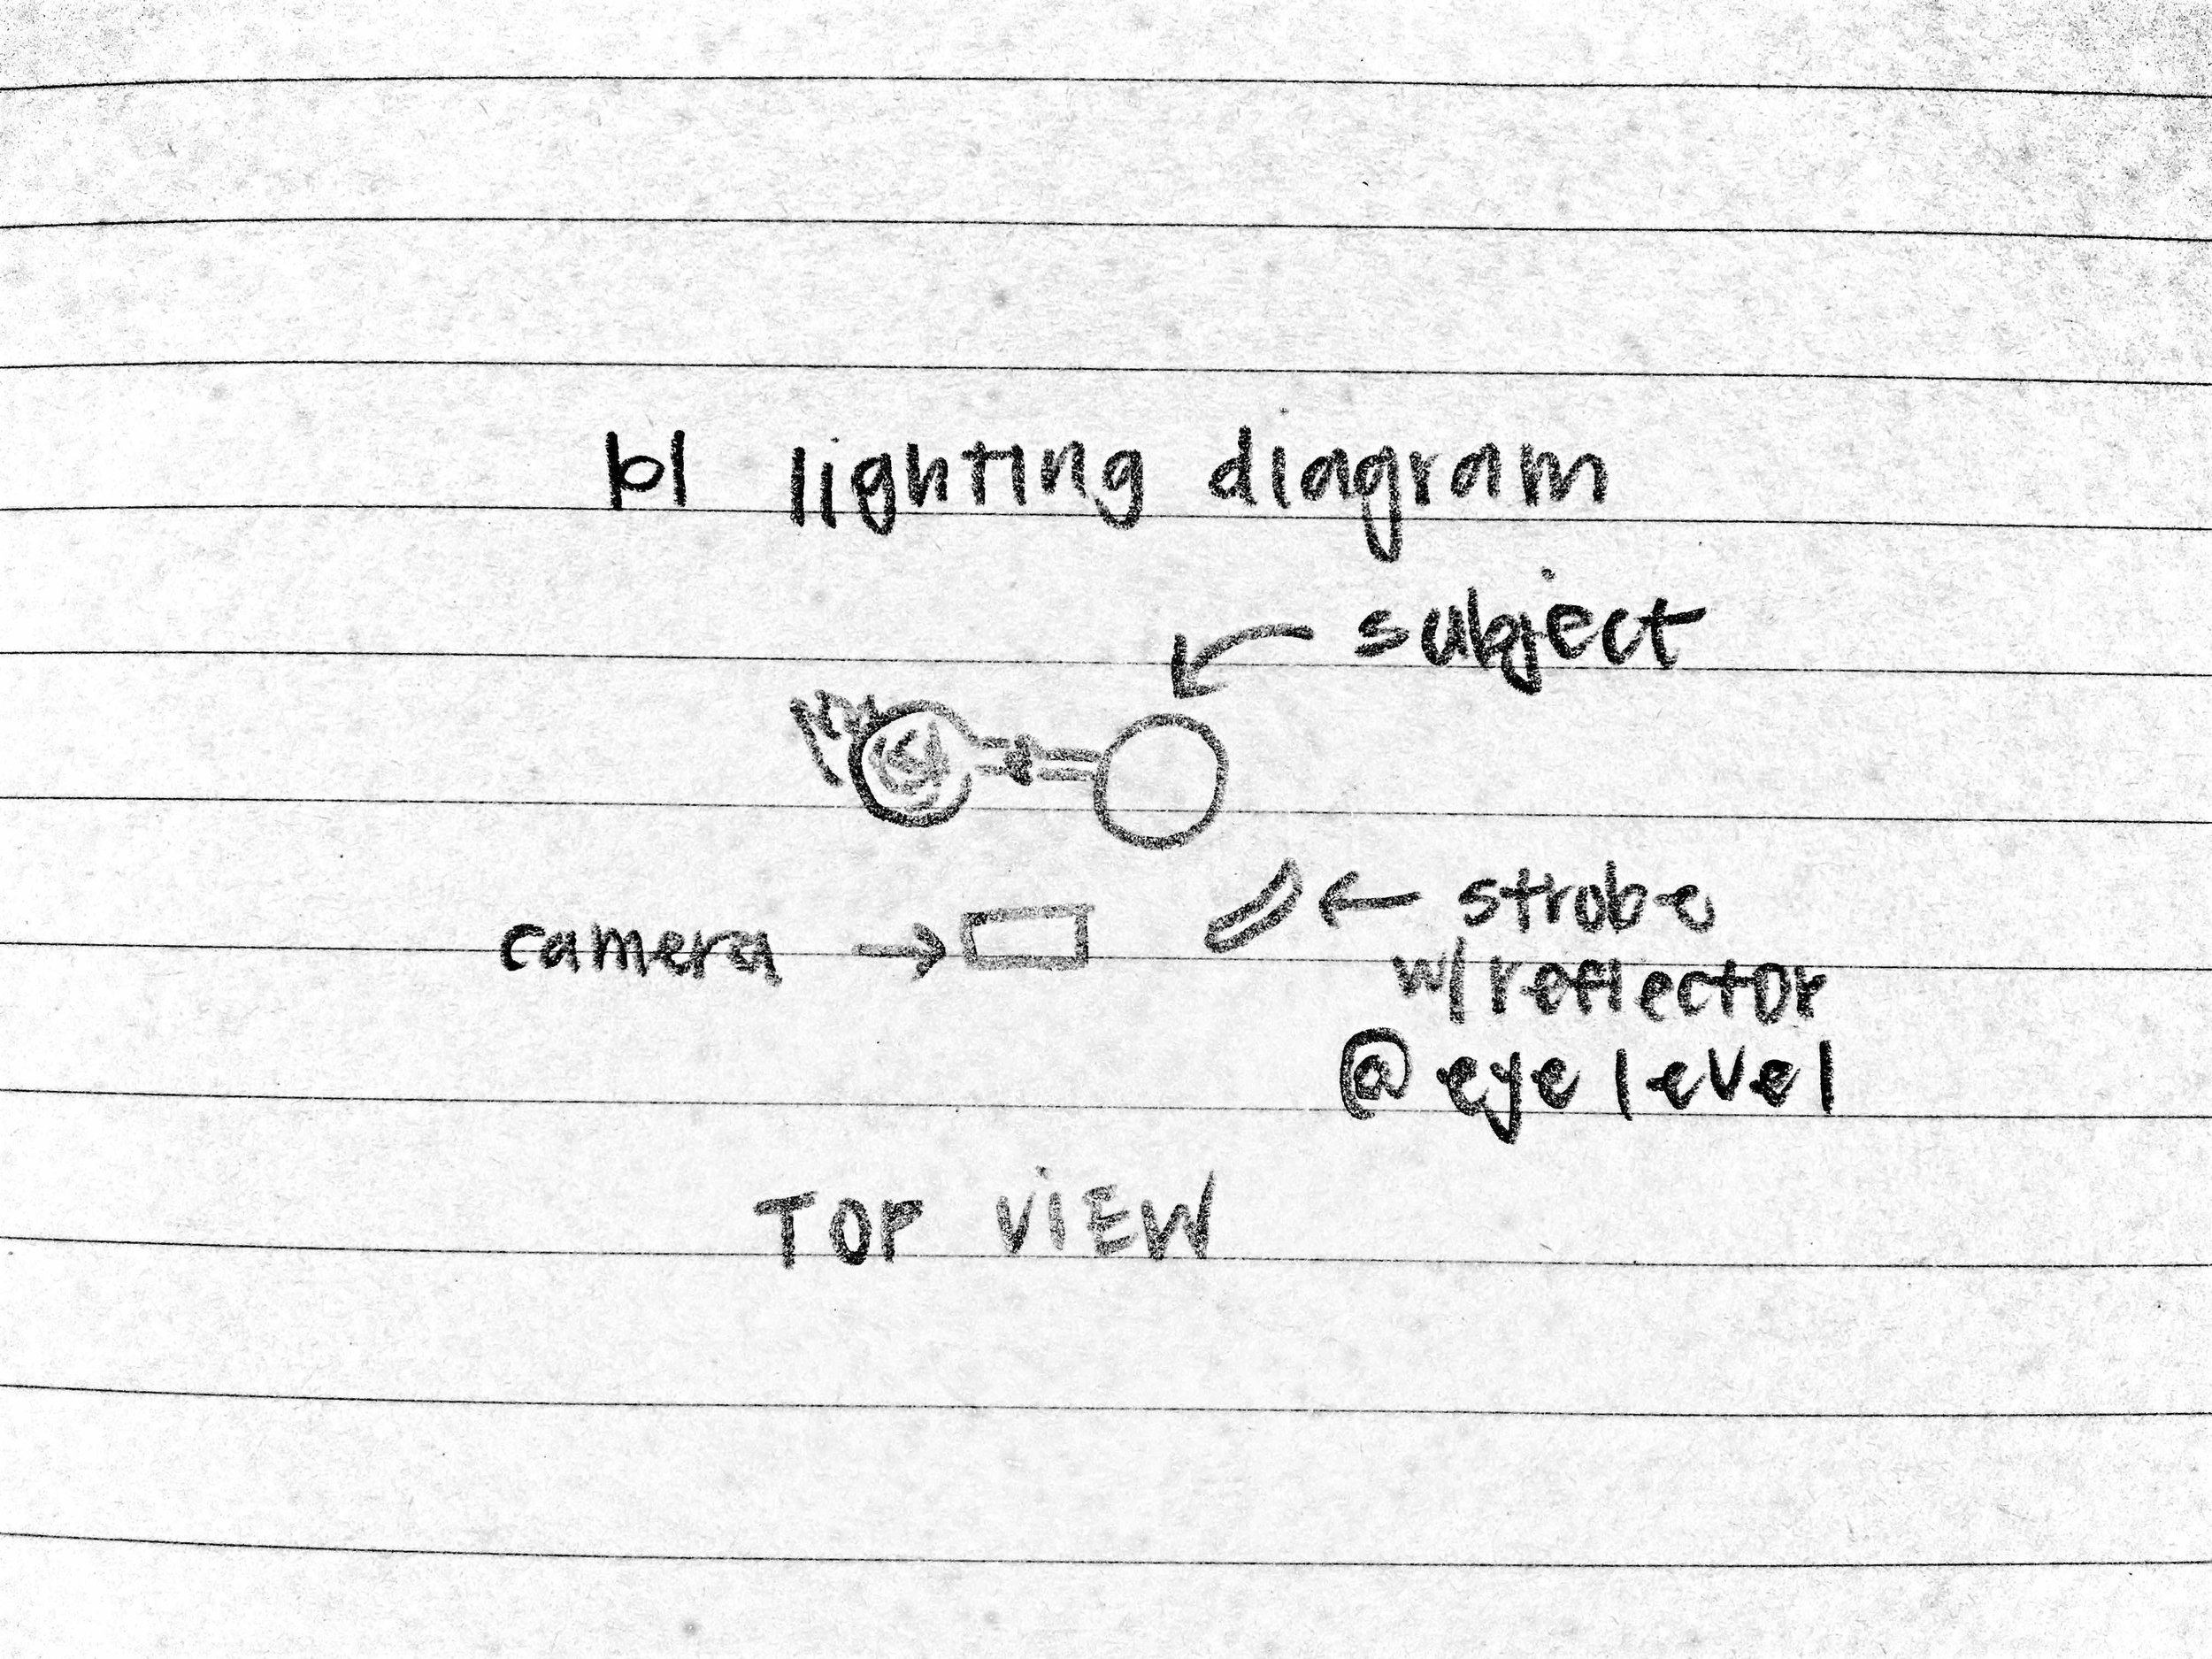 b| lighting diagram
subject
camera
strobe
w/reflector
@ eye level
TOP VIEW